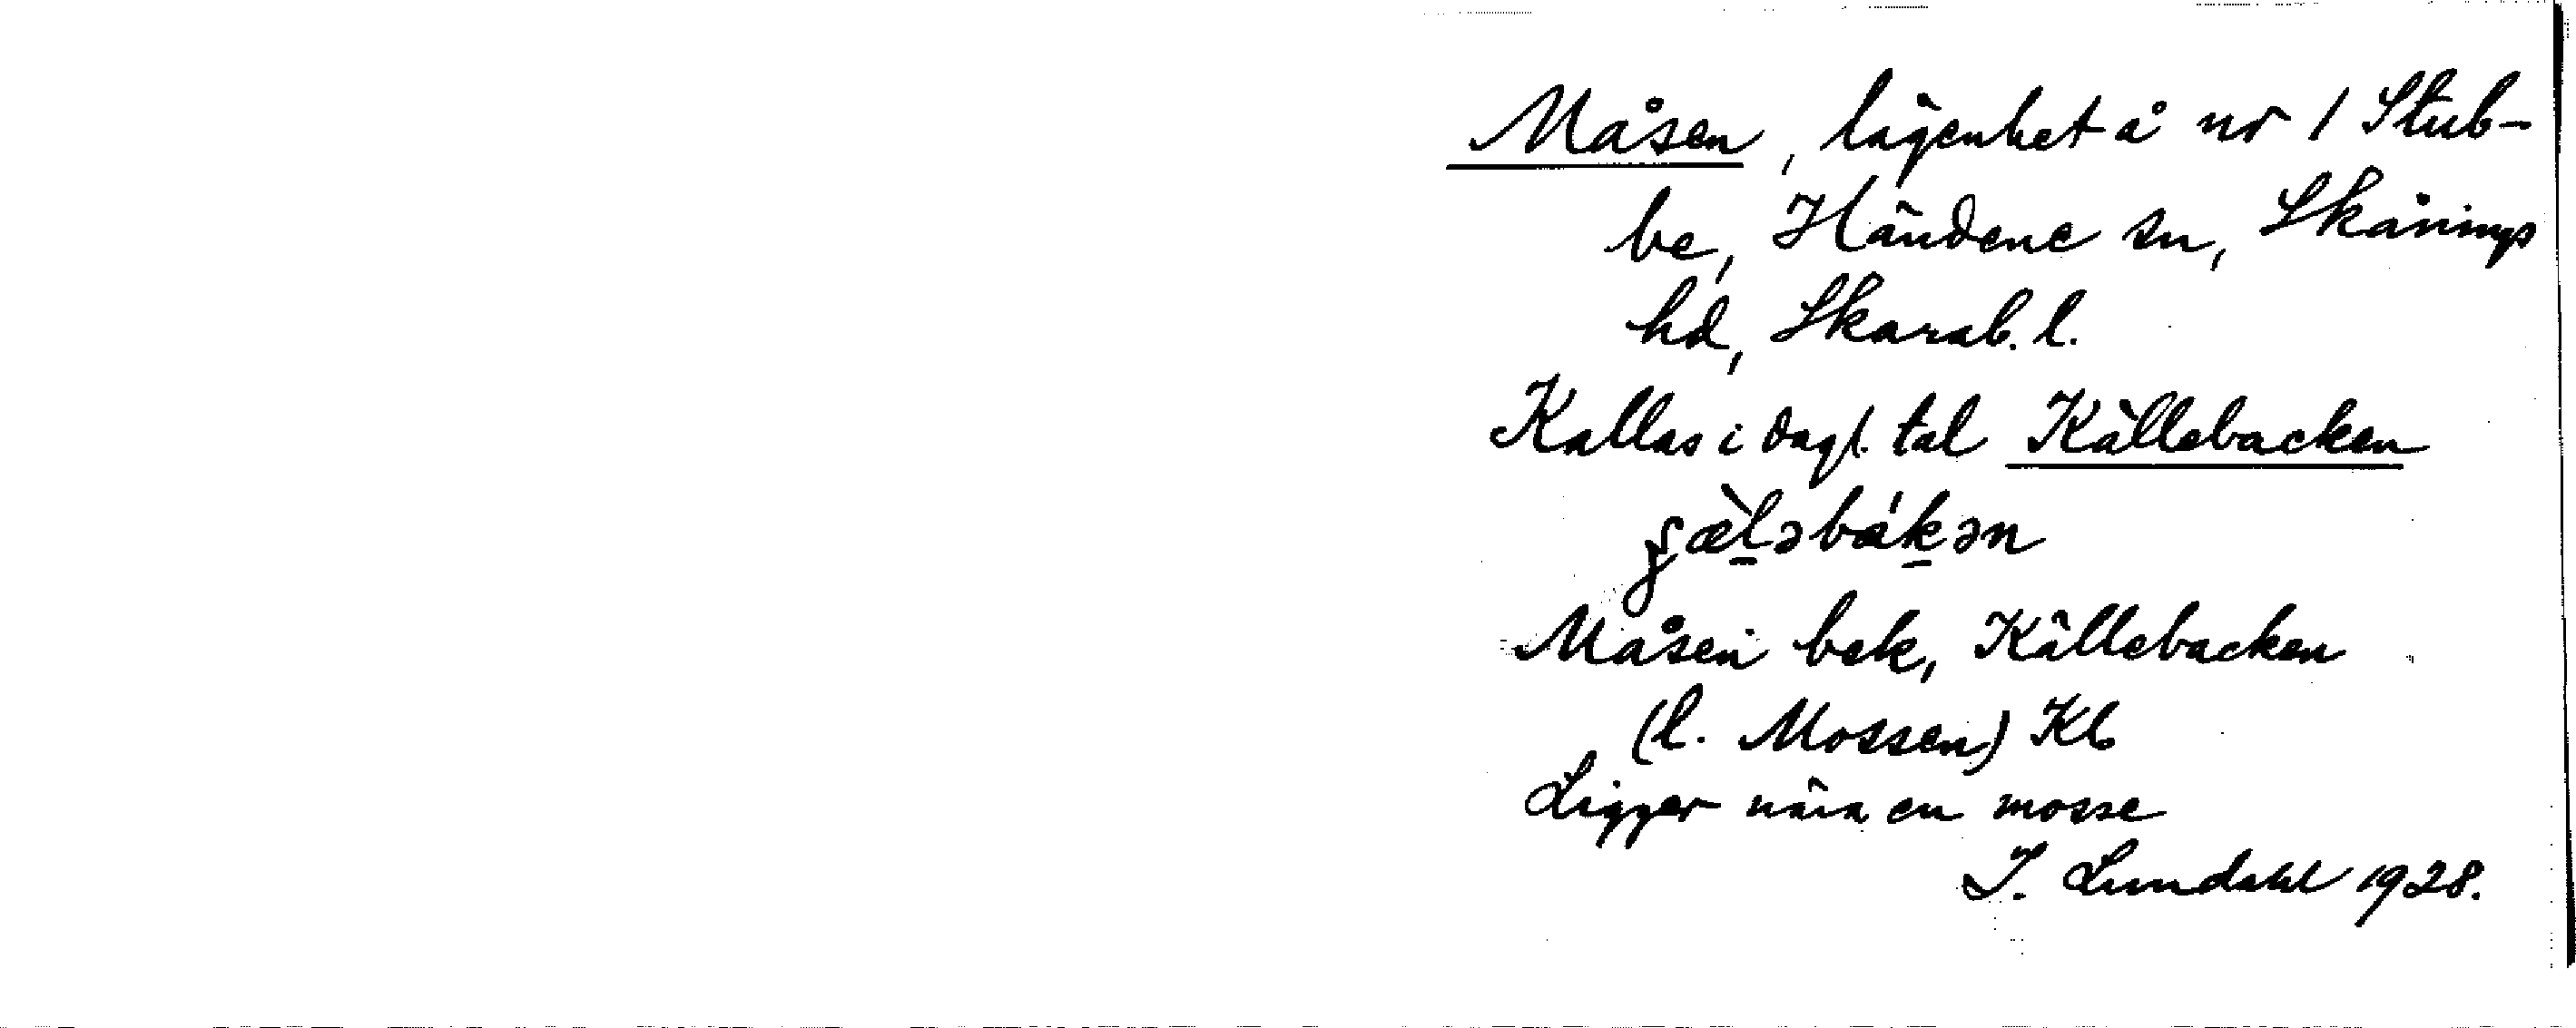 Måsen, lägenhet å nr 1 Stub-
be, Händene sn, Skånings
hd, Skarab. l.
Kallas i dagl. tal Källebacken
ʃæ̀l̠əbák̠ən
Måsen bok, Källebacken
(l. Mossen) Kb
Ligger nära en mosse
I. Lundahl 1928.